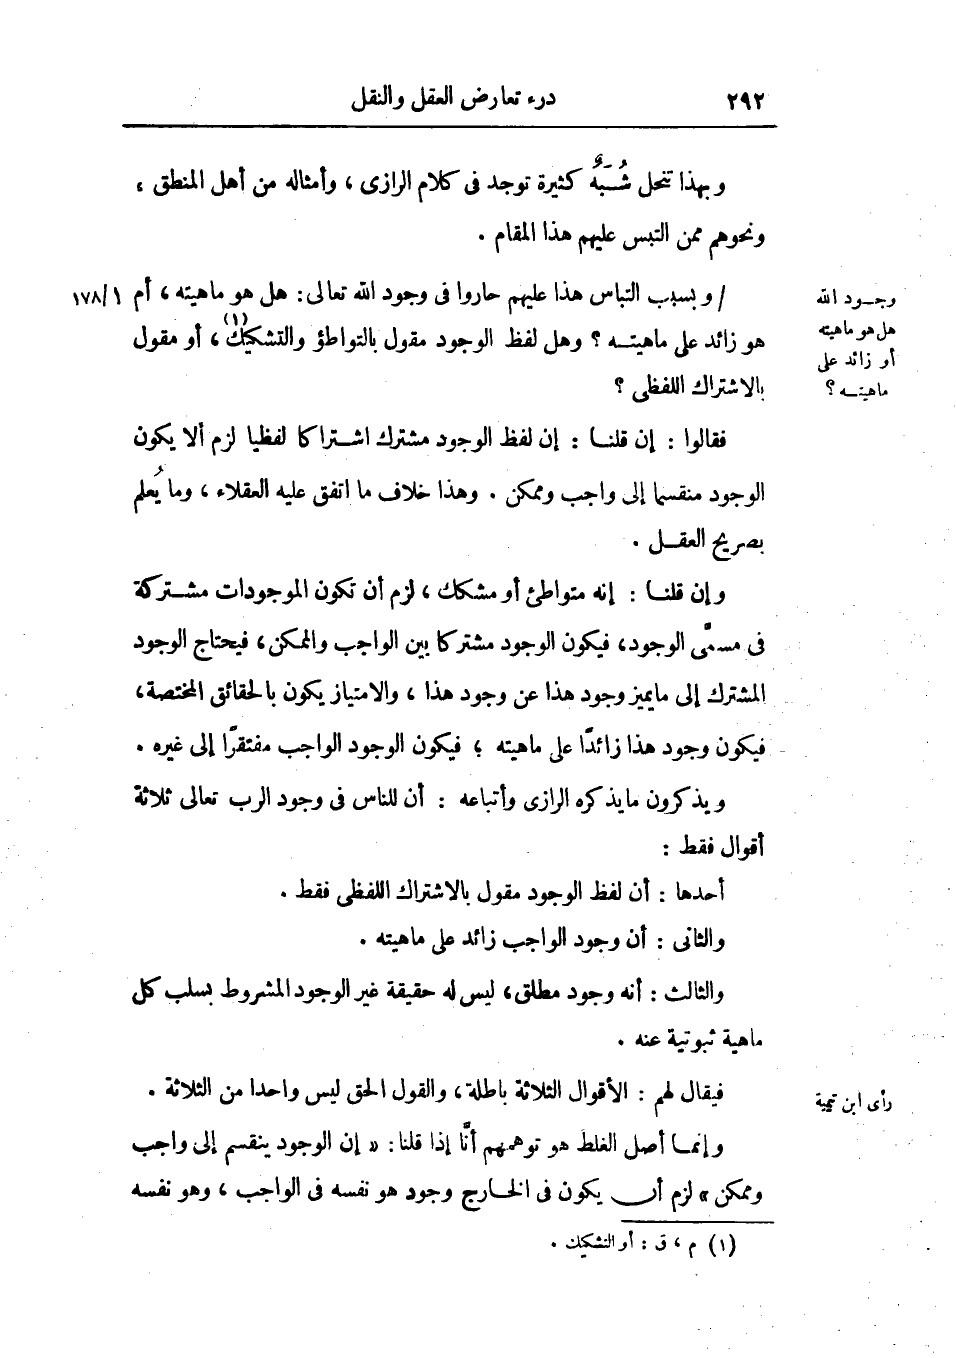 ٢٩٢ درء تعارض العقل والنقل
وبهذا تنحل شُبَهٌ كثيرة توجد فى كلام الرازى ، وأمثاله من أهل المنطق ،
ونحوهم ممن التبس عليهم هذا المقام .
/ وبسبب التباس هذا عليهم حاروا فى وجود الله تعالى : هل هو ماهيته ، أم
هو زائد على ماهيتــه ؟ وهل لفظ الوجود مقول بالتواطؤ والتشكيك (١) ، أو مقول
بالاشتراك اللفظى ؟
فقالوا : إن قلنــا : إن لفظ الوجود مشترك اشــتراكا لفظيا لزم ألا يكون
الوجود منقسما إلى واجب وممكن . وهذا خلاف ما اتفق عليه العقلاء ، وما يُعلم
بصريح العقــل .
وإن قلنــا : إنه متواطئ أو مشكك ، لزم أن تكون الموجودات مشــتركة
فى مسمَّى الوجود، فيكون الوجود مشتركا بين الواجب والممكن ، فيحتاج الوجود
المشترك إلى مايميز وجود هذا عن وجود هذا ، والامتياز يكون بالحقائق المختصة ،
فيكون وجود هذا زائدًا على ماهيته ؛ فيكون الوجود الواجب مفتقرًا إلى غيره .
ويذكرون مايذكره الرازى وأتباعه : أن للناس فى وجود الرب تعالى ثلاثة
أقوال فقط :
أحدها : أن لفظ الوجود مقول بالاشتراك اللفظى فقط .
والثانى : أن وجود الواجب زائد على ماهيته .
والثالث : أنه وجود مطلق، ليس له حقيقة غير الوجود المشروط بسلب كل
ماهية ثبوتية عنه .
فيقال لهم : الأقوال الثلاثة باطلة ، والقول الحق ليس واحدا من الثلاثة .
وإنمــا أصل الغلط هو توهمهم أنَّا إذا قلنا : « إن الوجود ينقسم إلى واجب
وممكن » لزم أن يكون فى الخارج وجود هو نفسه فى الواجب ، وهو نفسه
(١) م ، ق : أو التشكيك .
١/١٧٨
وجــود الله
هل هو ماهيته
أو زائد على
ماهيتــه ؟
رأى ابن تيمية